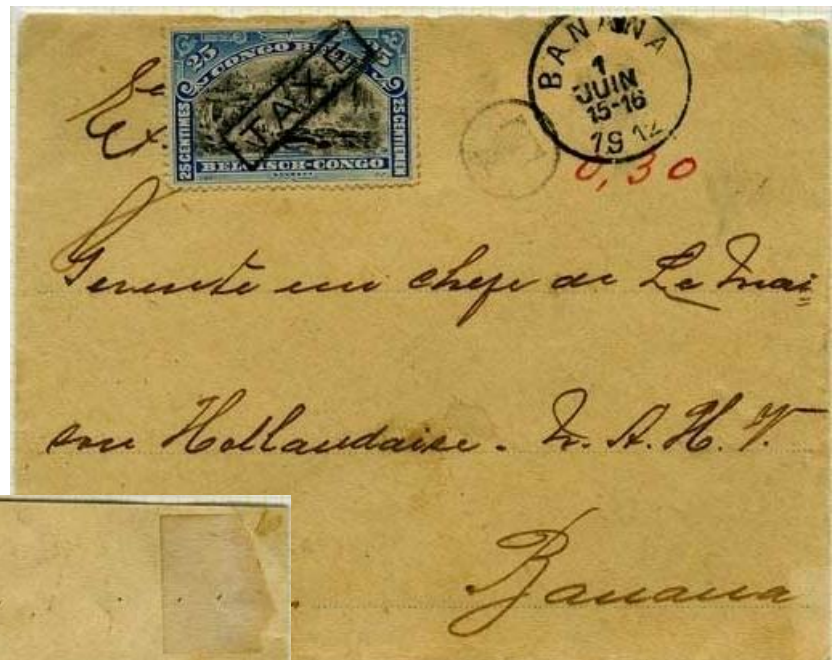 25 CONGO BELGE 25
25 CENTIMES
25 CENTIEMEN
TAXES
BELGISCH-CONGO
BANANA
1
JUIN
15-16
1912
T
0,30
Gerente em chefe de La Mai=
son Hollandaise. N. A. H. V.
Banana